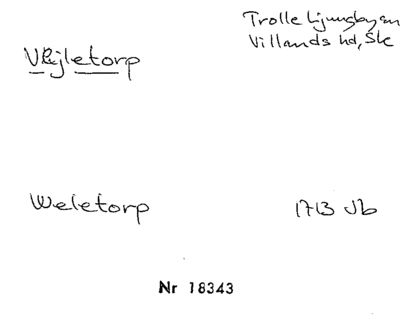 Trolle Ljungby sn
Villands hd, Sk
Vejletorp
Weletorp 1713 Jb
Nr 18343